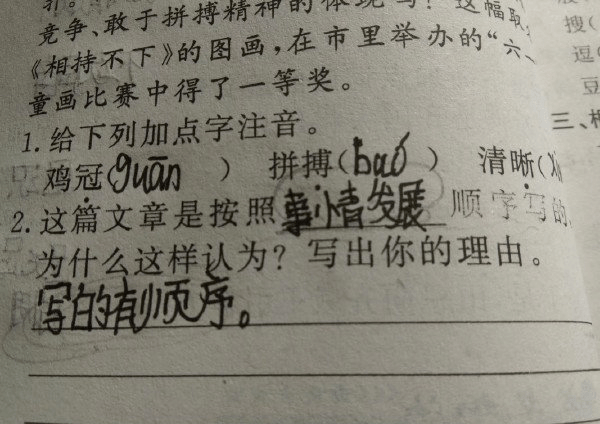 竞争、敢于拼搏精神的体现吗?这幅取
《相持不下》的图画,在市里举办的“六一
童画比赛中得了一等奖。
1.给下列加点字注音。
鸡冠(guān) 拼搏(baó) 清晰(x
2.这篇文章是按照事情发展顺序写的
为什么这样认为?写出你的理由。
写的有顺序。
搜(
逗(
豆
三、